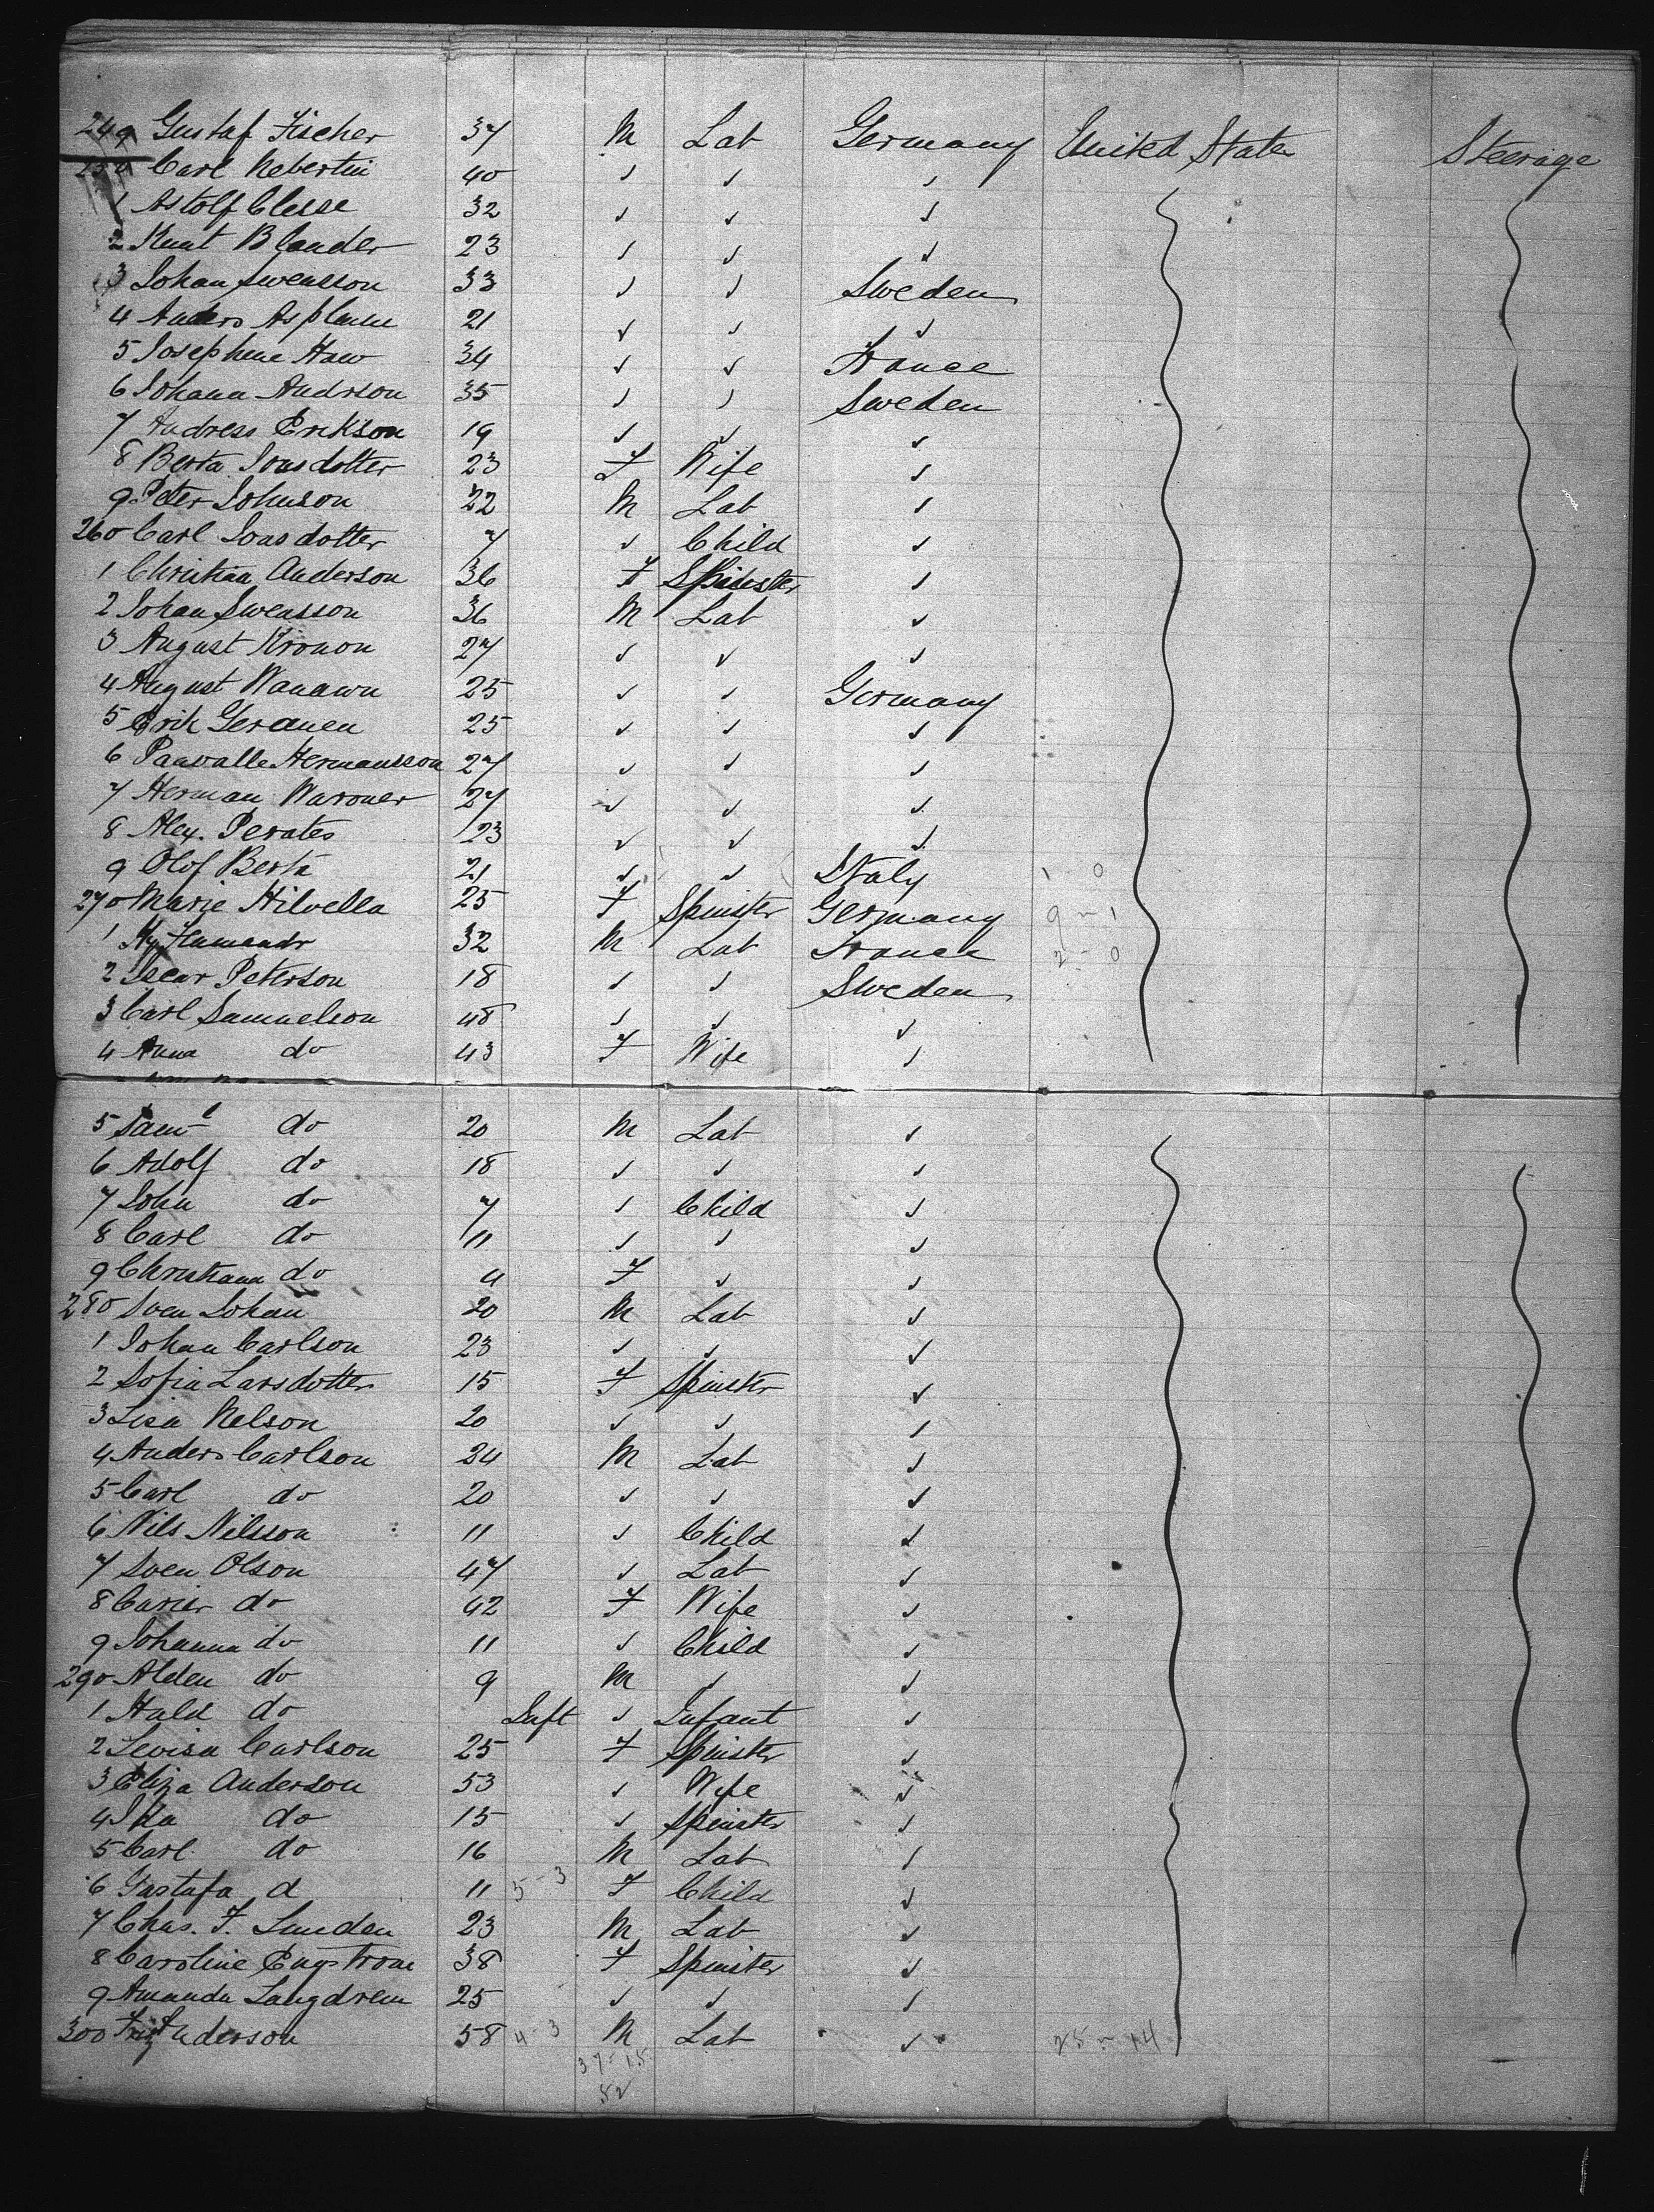 249 Gustaf Fischer 37 M Lab Germany United States Steerage
250 Carl Nebertin 40 ✓ ✓ ✓
1 Astolf Clesse 32 ✓ ✓ ✓
2 Knut Blander 23 ✓ ✓ ✓
3 Johan Swensson 33 ✓ ✓ Sweden
4 Anders Asplum 21 ✓ ✓ ✓
5 Josephine Haw 34 ✓ ✓ France
6 Johana Andrson 35 ✓ ✓ Sweden
7 Andress Erikson 19 ✓ ✓ ✓
8 Berta Jonsdotter 23 F Wife ✓
9 Peter Johnson 22 M Lab ✓
260 Carl Jonsdotter 7 ✓ Child ✓
1 Christian Anderson 36 F Spinster ✓
2 Johan Swensson 36 M Lab ✓
3 August Kronon 27 ✓ ✓ ✓
4 August Wanawn 25 ✓ ✓ Germany
5 Erik Geranen 25 ✓ ✓ ✓
6 Paavalle Hermansson 27 ✓ ✓ ✓
7 Herman Waroner 27 ✓ ✓ ✓
8 Alex. Perates 23 ✓ ✓ ✓
9 Olof Berta 21 ✓ ✓ Italy 1 - 0
270 Marie Hilvella 25 F Spinster Germany 9 - 1
1 Hy 32 M Lab France 2 - 0
2 Oscar Peterson 18 ✓ ✓ Sweden
3 Carl Samuelson 48 ✓ ✓ ✓
4 Anna do 43 F Wife ✓
5 Saml do 20 M Lab ✓
6 Adolf do 18 ✓ ✓ ✓
7 John do 7 ✓ Child ✓
8 Carl do 11 ✓ ✓ ✓
9 Christiana do 4 F ✓ ✓
280 Sven Johan 20 M Lab ✓
1 Johan Carlson 23 ✓ ✓ ✓
2 Sofia Larsdotter 15 F Spinster ✓
3 Lisa Nelson 20 ✓ ✓ ✓
4 Anders Carlson 24 M Lab ✓
5 Carl do 20 ✓ ✓ ✓
6 Nils Nilsson 11 ✓ Child ✓
7 Sven Olson 47 ✓ Lab ✓
8 Carier do 42 F Wife ✓
9 Johanna do 11 ✓ Child ✓
290 Alden do 9 M ✓ ✓
1 Hald do Inft ✓ Infant ✓
2 Levisa Carlson 25 F Spinster ✓
3 Eliza Anderson 53 ✓ Wife ✓
4 Ida do 15 ✓ Spinster ✓
5 Carl do 16 M Lab ✓
6 Gustafa d 11 5-3 F Child ✓
7 Chas. F. Lunden 23 M Lab ✓
8 Caroline Engstrom 38 F Spinster ✓
9 Amanda Langdrem 25 ✓ ✓ ✓
300 58 4-3 M Lab ✓ 25 - 14
37-15
52